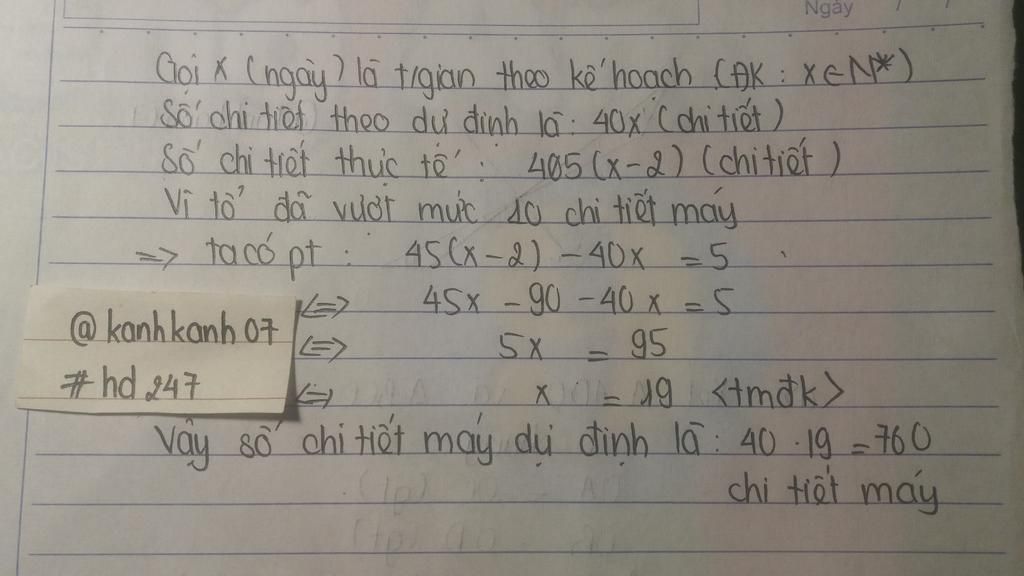 Ngày / /
Gọi x (ngày) là t/gian theo kế hoạch (ĐK : x ∈ N*)
Số chi tiết theo dự định là: 40x (chi tiết)
Số chi tiết thực tế : 405(x-2) (chi tiết)
Vì tổ đã vượt mức 10 chi tiết máy
=> ta có pt : 45(x-2) -40x = 5
<=> 45x -90 -40x = 5
<=> 5x = 95
<=> x = 19 <tmđk>
Vậy số chi tiết máy dự định là: 40 . 19 = 760
chi tiết máy
@kanhkanh07
#hd247